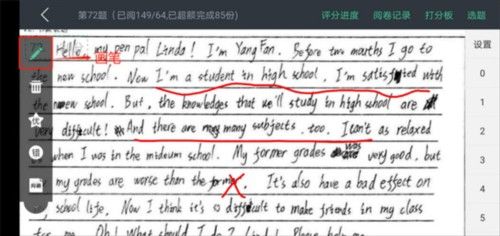 第72题（已阅149/64,已超额完成85份）
评分进度 阅卷记录 打分板 选题
画笔
设置
优
错
0
1
2
3
4
5
Hello, my pen pal Linda! I'm Yang Fan. Before two mouths I go to
the new school. Now I'm a student in high school. I'm satisfied with
the new school. But, the knowledges that we'll study in high school are
very difficult! And there are many subjects, too. I can't as relaxed
when I was in the mideum school. My former grades was very good, but
my grades are worse than the former. It's also have a bad effect on
my school life. Now I think it's difficult to make friends in my class
for me. Oh! What should I do? Linda! Please help me